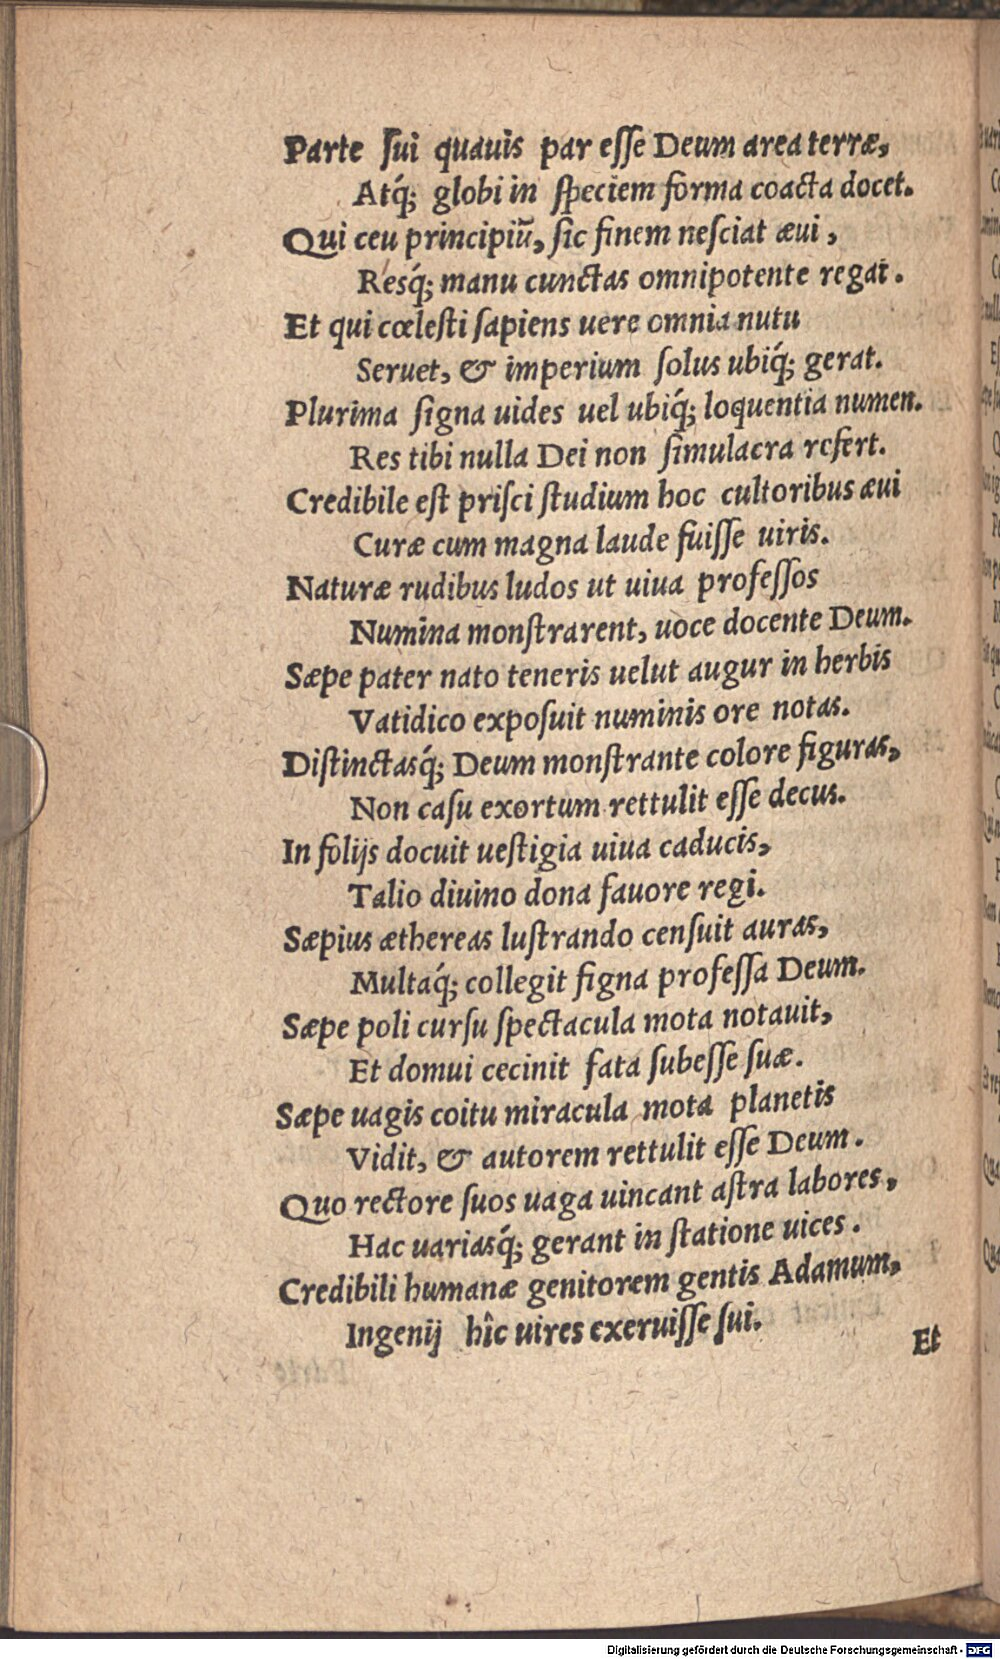 Parte ſui quauis par eſſe Deum area terræ,
Atq́; globi in ſpeciem forma coacta docet.
Qui ceu principiũ, ſic finem neſciat æui,
Resq́; manu cunctas omnipotente regat.
Et qui cœleſti ſapiens uere omnia nutu
Seruet, & imperium ſolus ubiq́; gerat.
Plurima ſigna uides uel ubiq́; loquentia numen.
Res tibi nulla Dei non ſimulacra refert.
Credibile eſt priſci ſtudium hoc cultoribus æui
Curæ cum magna laude fuiſſe uiris.
Naturæ rudibus ludos ut uiua profeſſos
Numina monſtrarent, uoce docente Deum.
Sæpe pater nato teneris uelut augur in herbis
Vatidico expoſuit numinis ore notas.
Diſtinctasq́; Deum monſtrante colore figuras,
Non caſu exortum rettulit eſſe decus.
In folijs docuit ueſtigia uiua caducis,
Talio diuino dona fauore regi.
Sæpius æthereas luſtrando cenſuit auras,
Multaq́; collegit ſigna profeſſa Deum.
Sæpe poli curſu ſpectacula mota notauit,
Et domui cecinit fata ſubeſſe ſuæ.
Sæpe uagis coitu miracula mota planetis
Vidit, & autorem rettulit eſſe Deum.
Quo rectore ſuos uaga uincant aſtra labores,
Hac uariasq́; gerant in ſtatione uices.
Credibili humanæ genitorem gentis Adamum,
Ingenij hîc uires exeruiſſe ſui.
Et
Digitalisierung gefördert durch die Deutsche Forschungsgemeinschaft - DFG